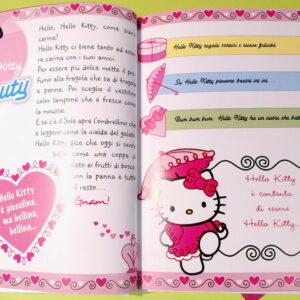 Hello, Hello Kitty, come siamo
carine!
Hello Kitty ci tiene tanto ad esse
re carina con i suoi amici.
Per essere più dolce mette il pro
fumo alla fragola che sa di fragola
con panna. Poi sceglie il vestitino
color lampone che è fresco come
la mousse.
E se c'è il Sole apre l'ombrellino che
è leggero come la cialda del gelato!
Hello Kitty dice che oggi si sente
bella come una coppa di
gelato ai frutti di bosco
con la panna e tutto
il resto...
Gnam!
Kitty
Hello Kitty
è piccolina,
ma bellina,
bellina...
Hello Kitty regala sorrisi e riceve felicità
Su Hello Kitty piovono bacini ini ini
Bum bum bum. Hello Kitty ha un cuore che batte
Hello Kitty
è contenta
di essere
Hello Kitty...